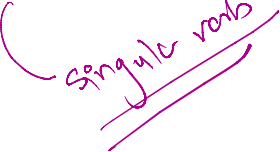 singular verb